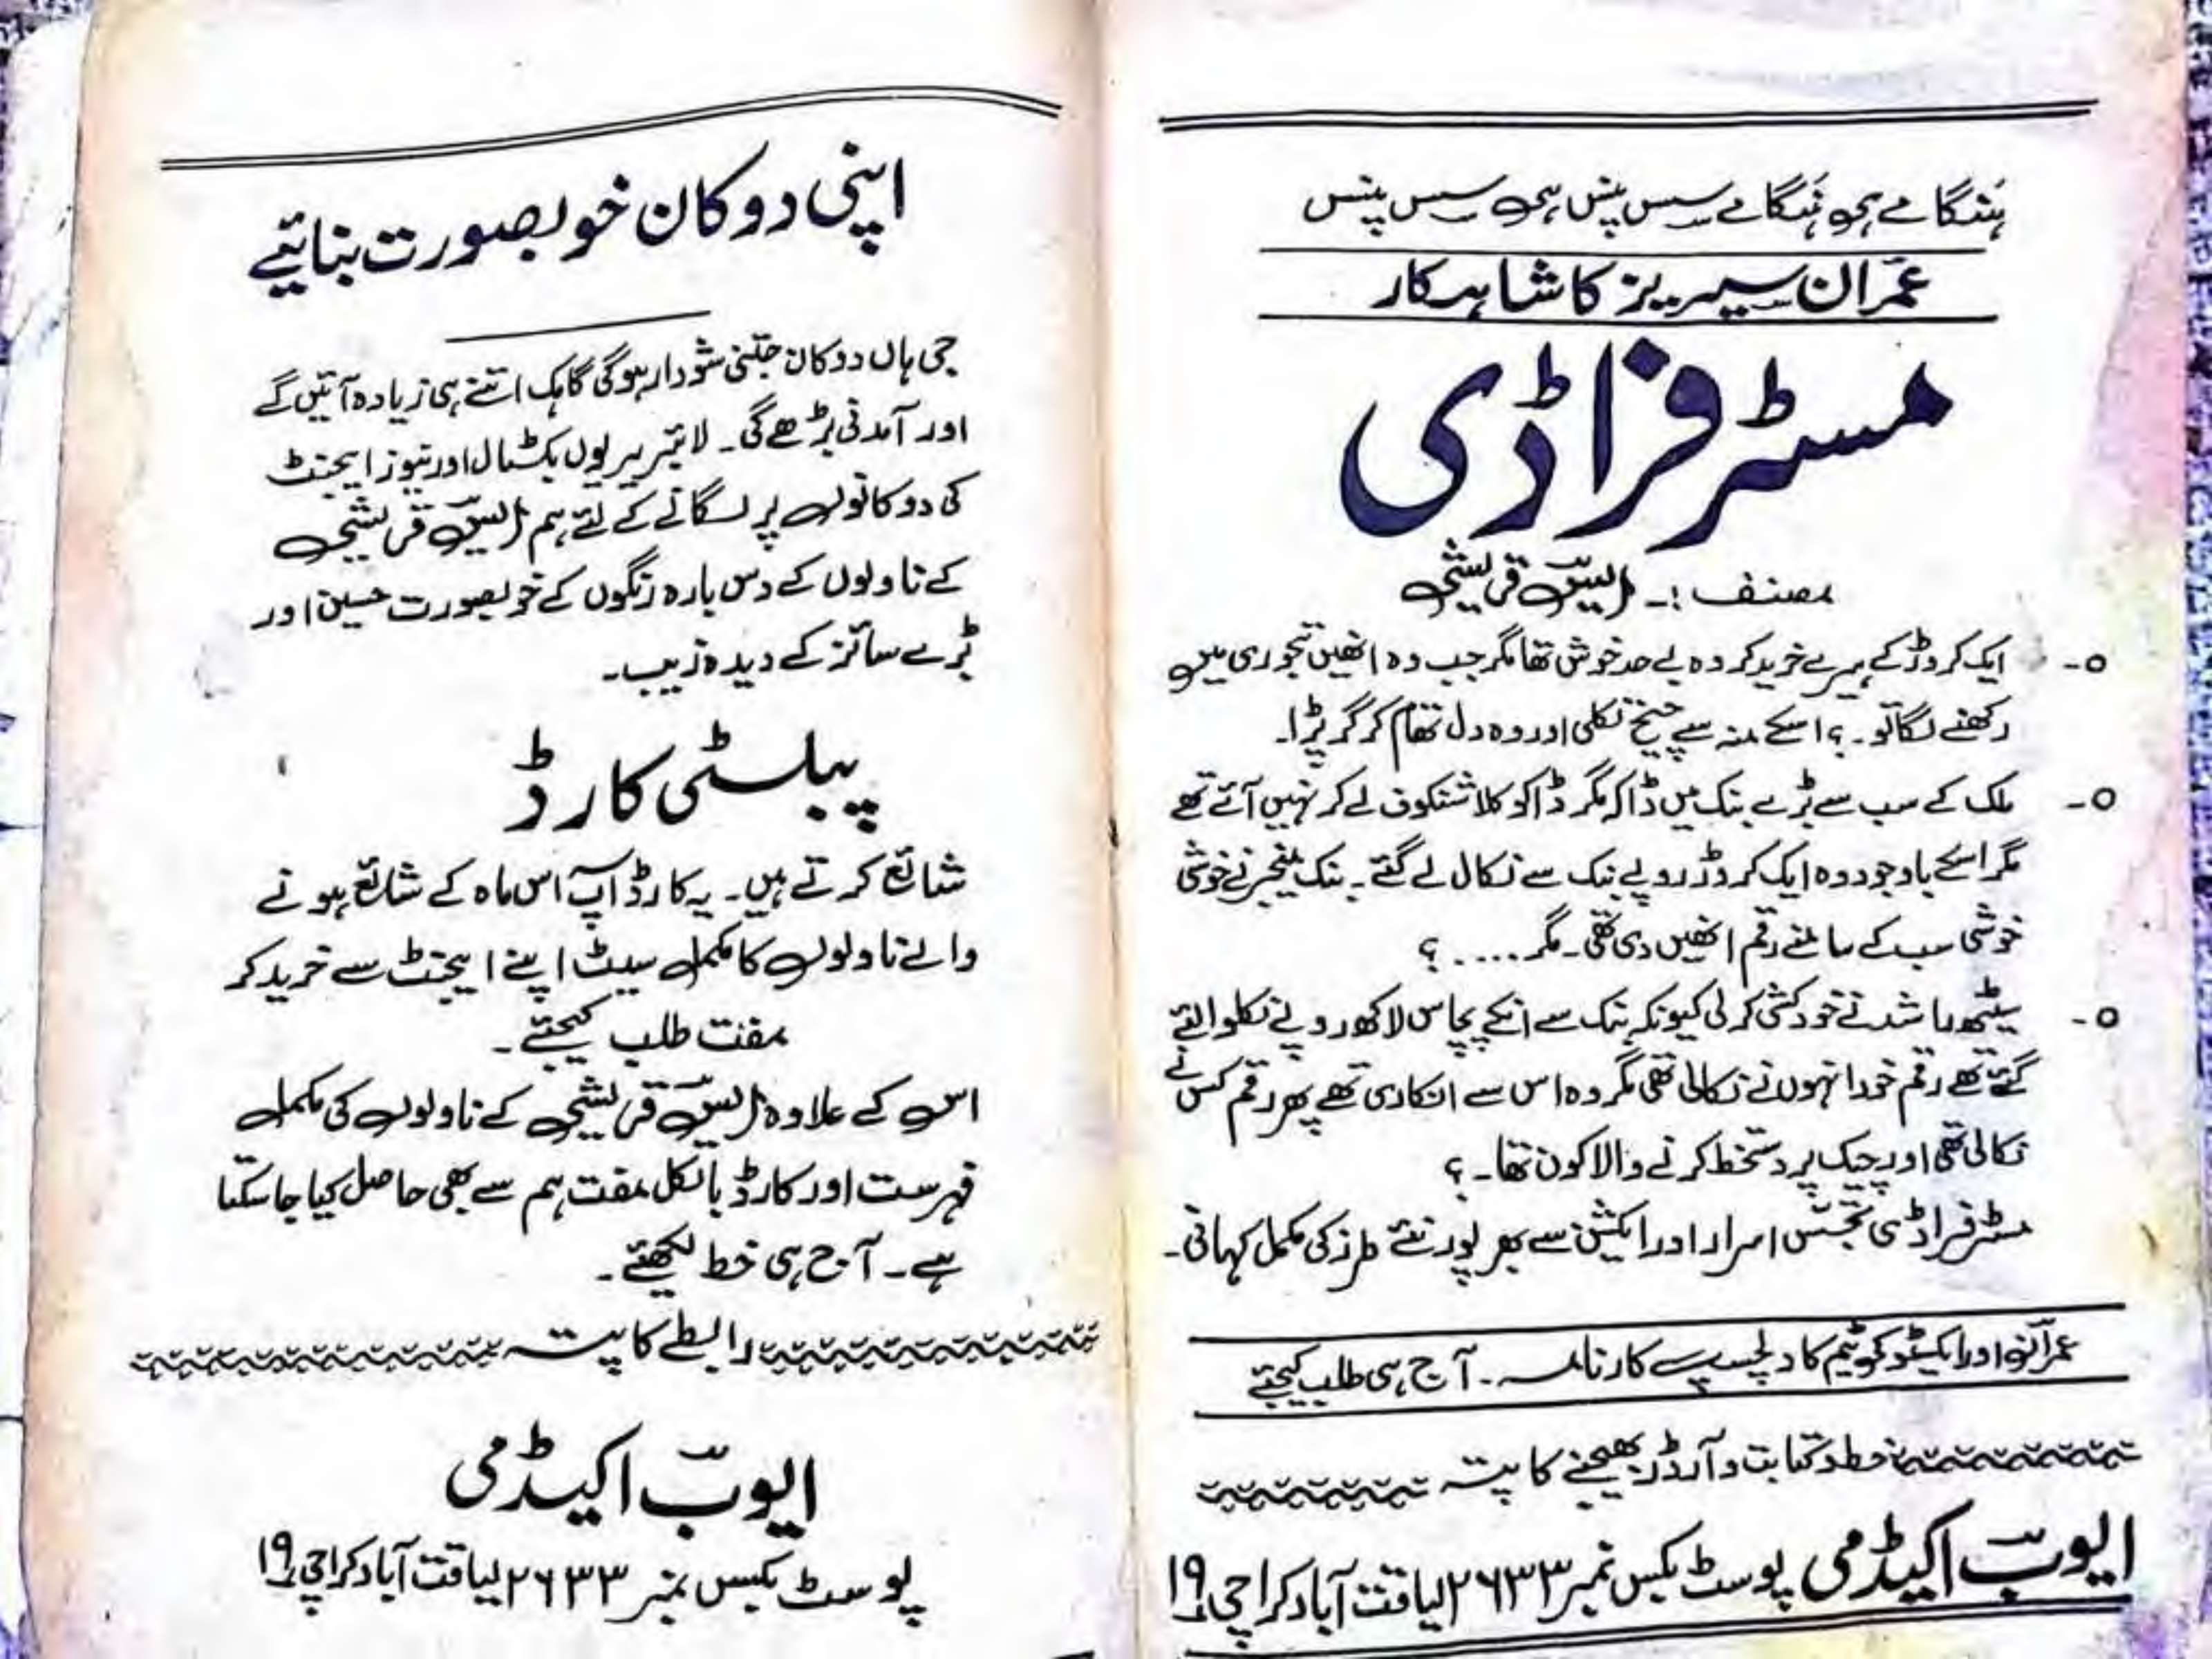 ہنگامے ہی ہنگامے سس پنس ہی سس پنس
عمران سیریز کا شاہکار
مسٹر فراڈی
مصنف :۔ ایس قریشی
۵۔ ایک کروڑ کے ہیرے خرید کر وہ بے حد خوش تھا مگر جب وہ انھیں تجوری میں
رکھنے لگا تو۔ ؟ اسکے منہ سے چیخ نکلی اور وہ دل تھام کر گر پڑا۔
۵۔ ملک کے سب سے بڑے بنک میں ڈاکہ مگر ڈاکو کلاشنکوف لے کر نہیں آئے تھے
مگر اسکے باوجود وہ ایک کروڑ روپے بنک سے نکال لے گئے۔ بنک منیجر نے خوشی
خوشی سب کے سامنے رقم انھیں دی تھی۔ مگر.....؟
۵۔ سیٹھ راشد نے خودکشی کر لی کیونکہ بنک سے انکے پچاس لاکھ روپے نکلوا لئے
گئے تھے رقم خود انہوں نے نکالی تھی مگر وہ اس سے انکاری تھے پھر رقم کس نے
نکالی تھی اور چیک پر دستخط کرنے والا کون تھا۔ ؟
مسٹر فراڈی تجسّس اسرار اور ایکشن سے بھرپور نئے طرز کی مکمل کہانی۔
عمران اور ایکسٹو کی ٹیم کا دلچسپ کارنامہ۔ آج ہی طلب کیجئے
خط و کتابت و آرڈر بھیجنے کا پتہ
ایوب اکیڈمی پوسٹ بکس نمبر ۲۶۳۳ لیاقت آباد کراچی ۱۹
اپنی دوکان خوبصورت بنائیے
جی ہاں دوکان جتنی شودار ہوگی گاہک اتنے ہی زیادہ آئیں گے
اور آمدنی بڑھے گی۔ لائبریریوں بکسٹال اور نیوز ایجنٹ
کی دوکانوں پر لگانے کے لئے ہم ایس قریشی
کے ناولوں کے دس بارہ رنگوں کے خوبصورت حسین اور
بڑے سائز کے دیدہ زیب۔
پبلسٹی کارڈ
شائع کرتے ہیں۔ یہ کارڈ آپ اس ماہ کے شائع ہونے
والے ناولوں کا مکمل سیٹ اپنے ایجنٹ سے خرید کر
مفت طلب کیجئے۔
اس کے علاوہ ایس قریشی کے ناولوں کی مکمل
فہرست اور کارڈ بالکل مفت ہم سے بھی حاصل کیا جا سکتا
ہے۔ آج ہی خط لکھئے۔
رابطے کا پتہ
ایوب اکیڈمی
پوسٹ بکس نمبر ۲۶۳۳ لیاقت آباد کراچی ۱۹